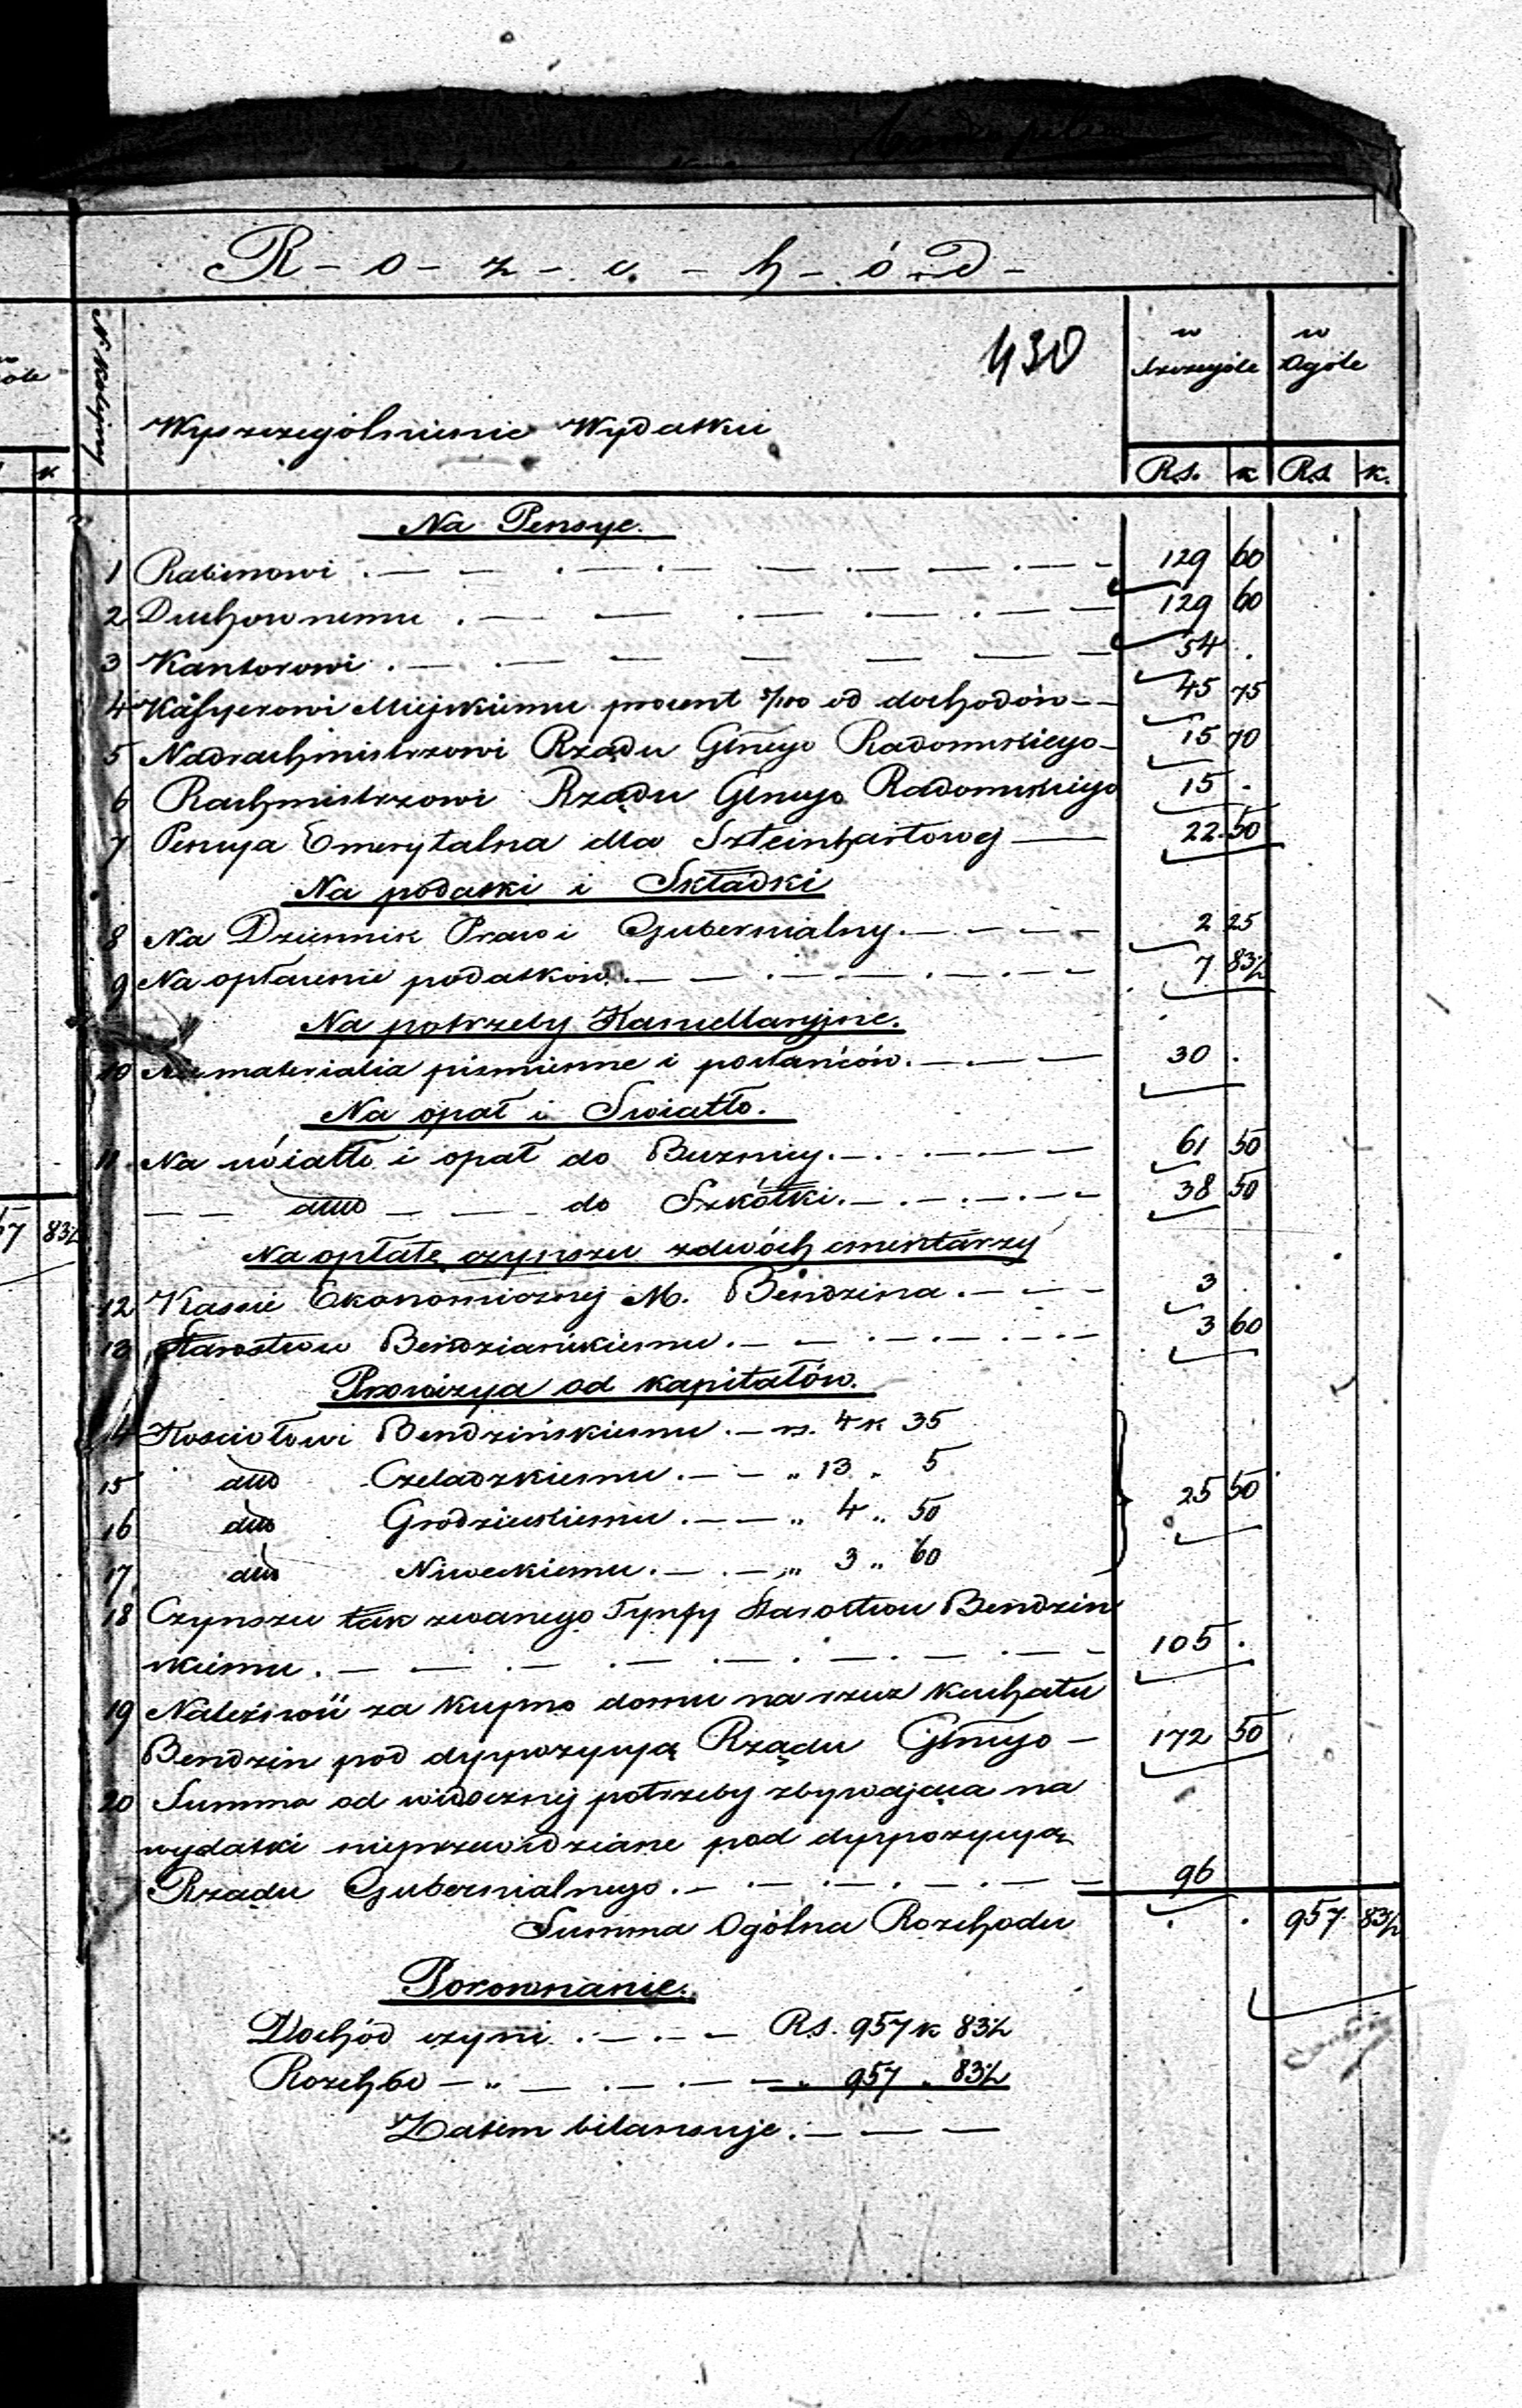 R-o-z-c-h-ó-d-
430
N. Kolejny
Wyszczególnienie Wydatku
w szczególe
w Ogóle
Rs. k Rs. k.
Na Pensye.
1 Rabinowi . — 129 60
2 Duchownemu . — 129 60
3 Kantorowi . — 54 .
4 Kassyerowi Miejskiemu procent 5/100 od dochodów - - 45 75
5 Nadrachmistrzowi Rządu Glnego Radomskiego - 15 70
6 Rachmistrzowi Rządu Glnego Radomskiego 15 .
7 Pensya Emerytalna dla Szteinhartowej — 22 50
Na podatki i Składki
8 Na Dziennik Praw i Gubernialny. — 2 25
9 Na opłacenie podatków. — 7 83½
Na potrzeby Kancellaryjne.
10 Na materialia piśmienne i posłańców. — 30 .
Na opał i Swiatło.
11 Na swiatło i opał do Buznicy. — 61 50
— — dtto — — do Szkółki. — 38 50
Na opłatę czynszu z dwóch cmentarzy
12 Kassie Ekonomicznej M. Bendzina . — 3 .
13 Starostwu Bendzinskiemu. — 3 60
Prowizya od kapitałów.
14 Kosciołowi Bendzińskiemu . — rs. 4 k 35
15 dtto Czeladzkiemu. — „ 13 „ 5
16 dtto Grodzieckiemu. — „ 4 „ 50
25 50
17 dtto Niweckiemu. — „ 3 „ 60
18 Czynszu tak zwanego Tynfy Starostwu Bendzin
skiemu . — 105 .
19 Należność za kupno domu na rzecz kachału
Bendzin pod dyspozycyą Rządu Glnego — 172 50
20 Summa od widocznej potrzeby zbywająca na
wydatki nieprzewidziane pod dyspozycyą
Rządu Gubernialnego. — 96
Summa Ogólna Rozchodu . . 957 83½
Porownanie.
Dochód czyni . — Rs. 957 k 83½
Rozchód — „ — „ 957 „ 83½
Zatem bilansuje. — — —
k
7 83½